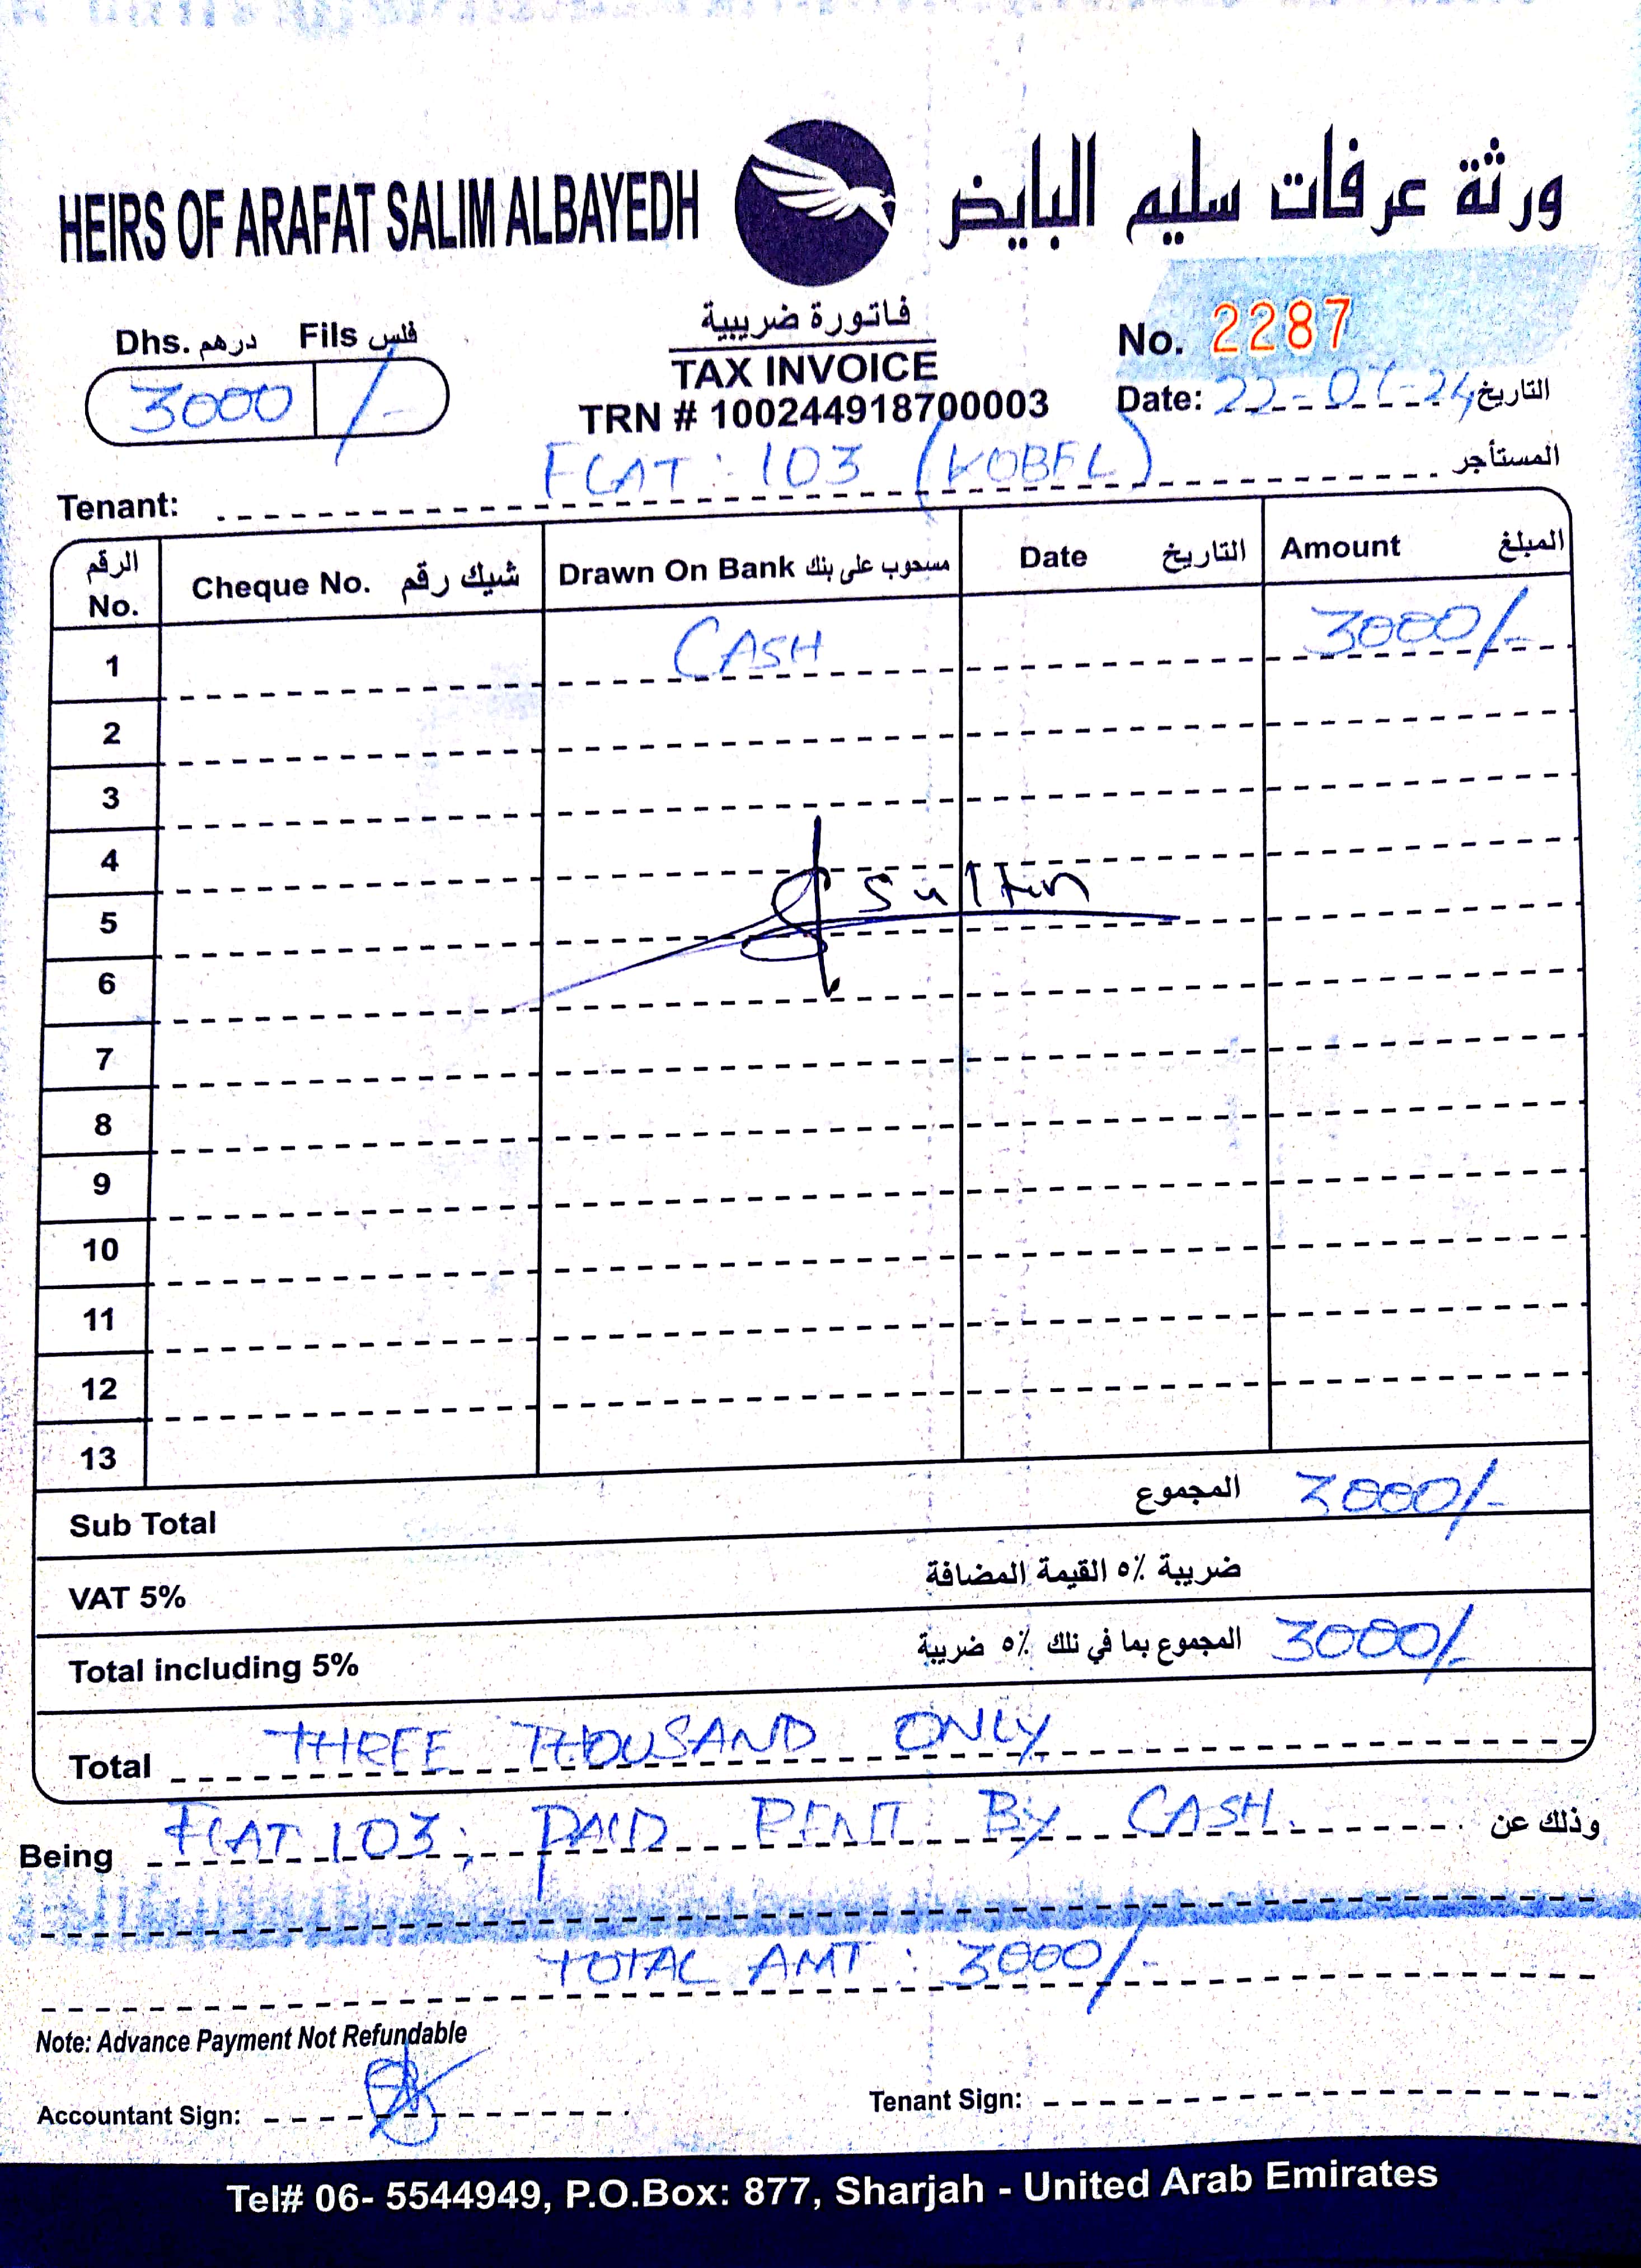 HEIRS OF ARAFAT SALIM ALBAYEDH ورثة عرفات سليم البايض
فاتورة ضريبية
TAX INVOICE
TRN # 100244918700003
Dhs. درهم Fils فلس
3000 /-
No. 2287
Date: 22-07-24 التاريخ
Tenant: FLAT : 103 (KOBEL) المستأجر
الرقم No. Cheque No. شيك رقم Drawn On Bank مسحوب على بنك Date التاريخ Amount المبلغ
1 CASH 3000/-
2
3
4
5 Sultan
6
7
8
9
10
11
12
13
Sub Total المجموع 3000/-
VAT 5% ضريبة ٥٪ القيمة المضافة
Total including 5% المجموع بما في ذلك ٥٪ ضريبة 3000/-
Total THREE THOUSAND ONLY
Being FLAT 103; PAID RENT BY CASH. وذلك عن
TOTAL AMT : 3000/-
Note: Advance Payment Not Refundable
Accountant Sign: Tenant Sign:
Tel# 06- 5544949, P.O.Box: 877, Sharjah - United Arab Emirates